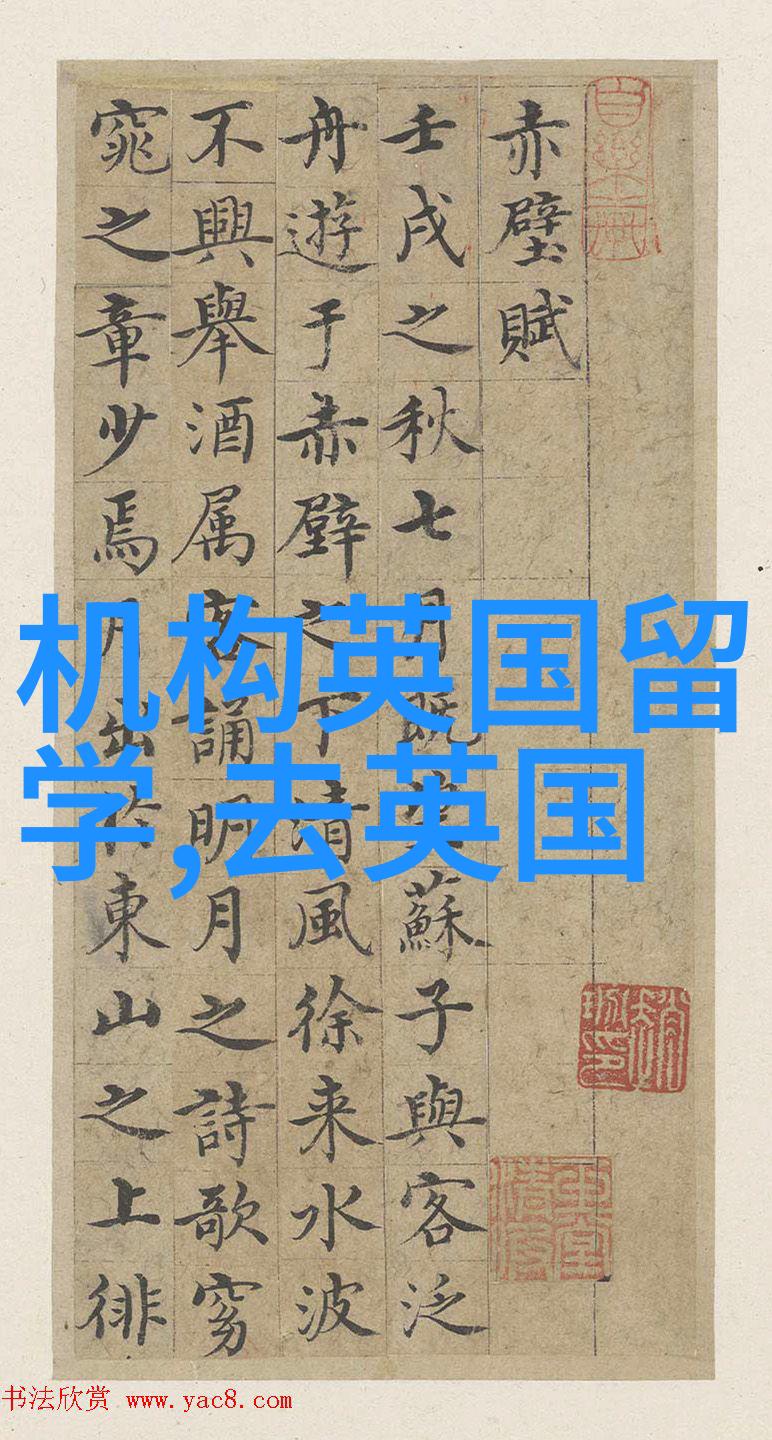 赤壁賦
壬戌之秋七月既望蘇子與客泛
舟遊于赤壁之下清風徐来水波
不興舉酒属客誦明月之詩歌窈
窕之章少焉月出於東山之上徘
机构英国留
学,去英国
书法欣赏 www.yac8.com